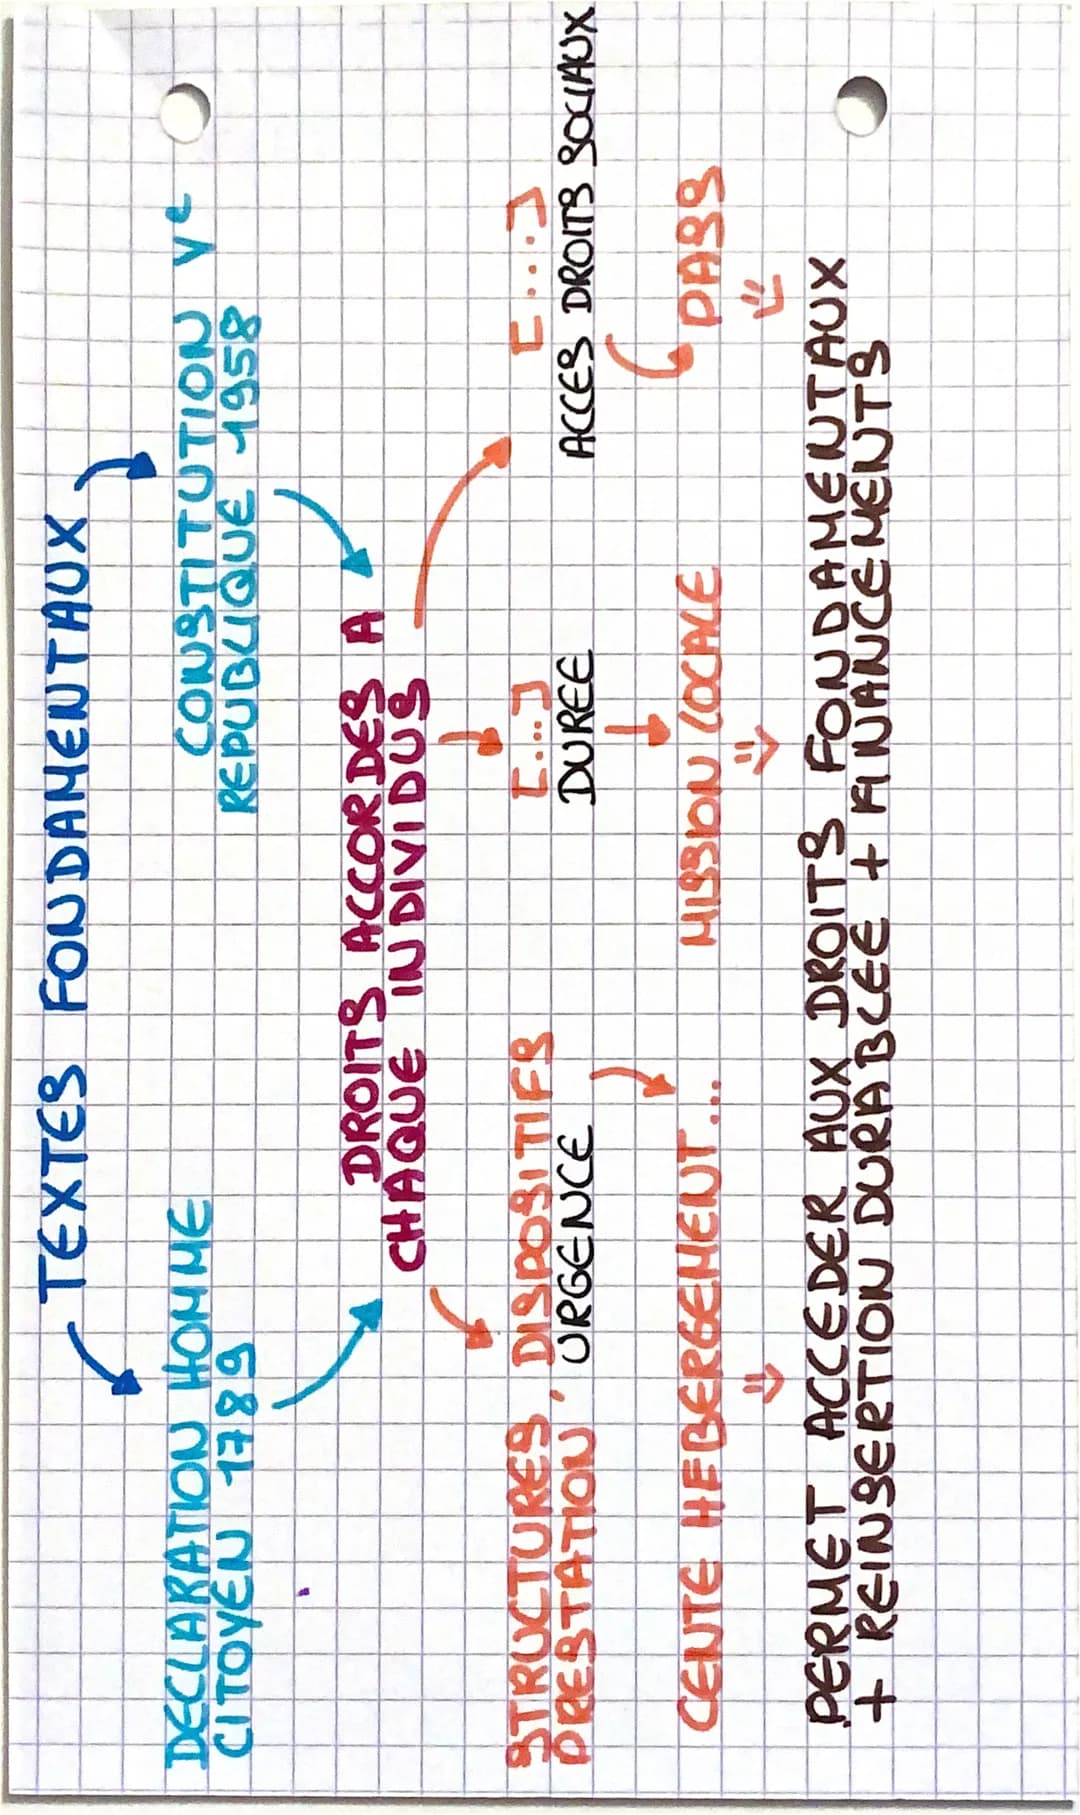 TEXTES FONDAMENTAUX
DECLARATION HOMME
CITOYEN 1789
CONSTITUTION Ve
REPUBLIQUE 1958
DROITS ACCORDES A
CHAQUE INDIVIDUS
STRUCTURES, DISPOSITIFS
PRESTATION, URGENCE
[...]
DUREE
[....]
ACCES DROITS SOCIAUX
CENTE HEBERGEMENT...
MISSION LOCALE
PASS
PERMET ACCEDER AUX DROITS FONDAMENTAUX
+ REINSERTION DURABLEE + FINANCEMENTS